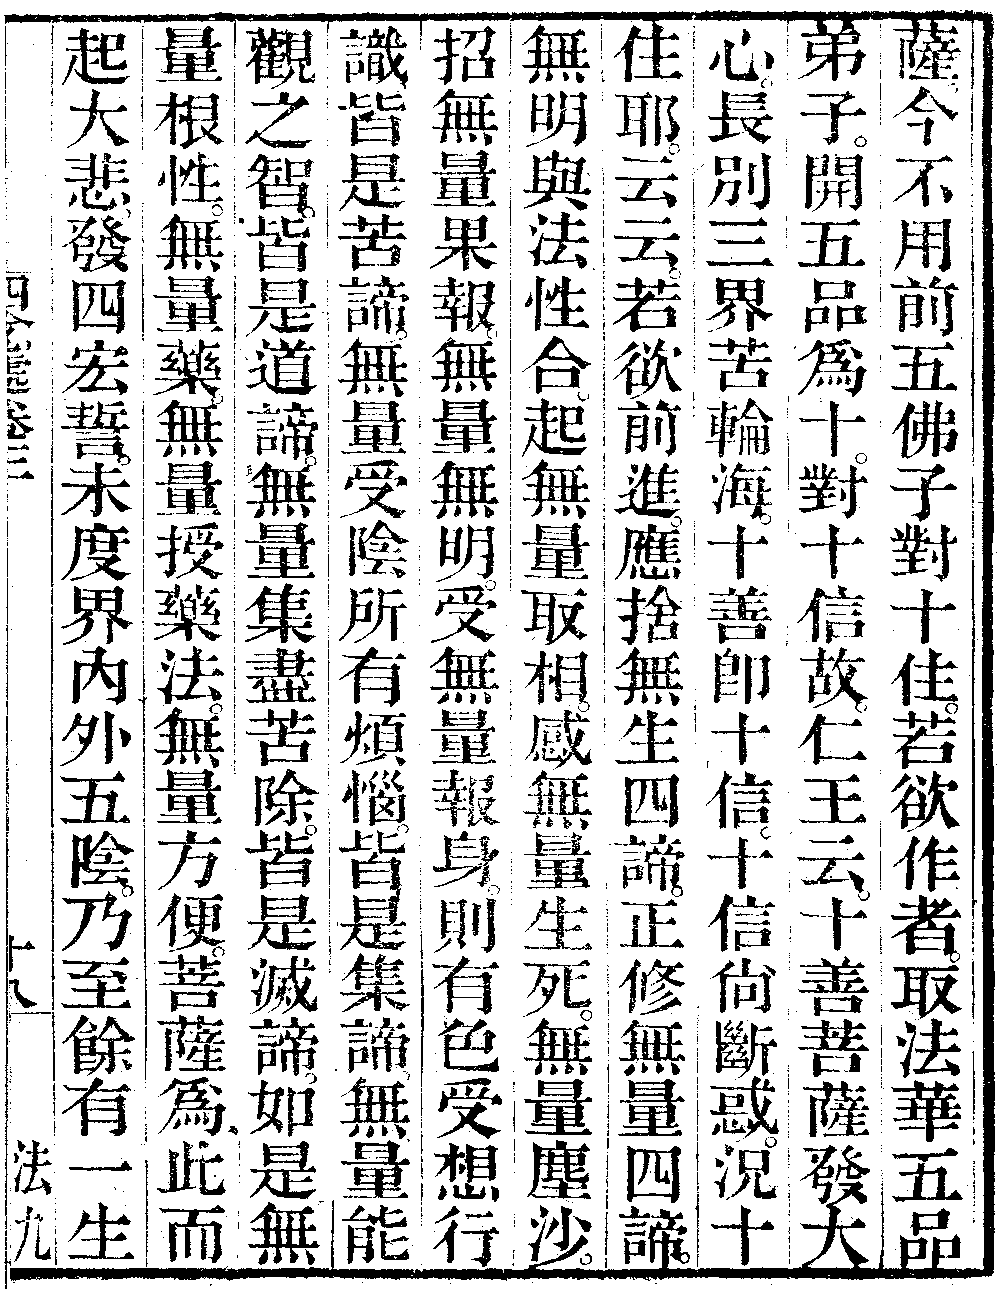 薩今不用前五佛子對十住。若欲作者。取法華五品
弟子。開五品爲十。對十信故。仁王云。十善菩薩發大
心。長別三界苦輪海。十善卽十信。十信尙斷惑。況十
住耶。云云。若欲前進。應捨無生四諦。正修無量四諦。
無明與法性合。起無量取相。感無量生死。無量塵沙。
招無量果報。無量無明。受無量報身。則有色受想行
識皆是苦諦。無量受陰所有煩惱。皆是集諦。無量能
觀之智。皆是道諦。無量集盡苦除。皆是滅諦。如是無
量根性。無量藥。無量授藥法。無量方便。菩薩爲此而
起大悲。發四宏誓。未度界內外五陰。乃至餘有一生
四念處卷三 十八 法九